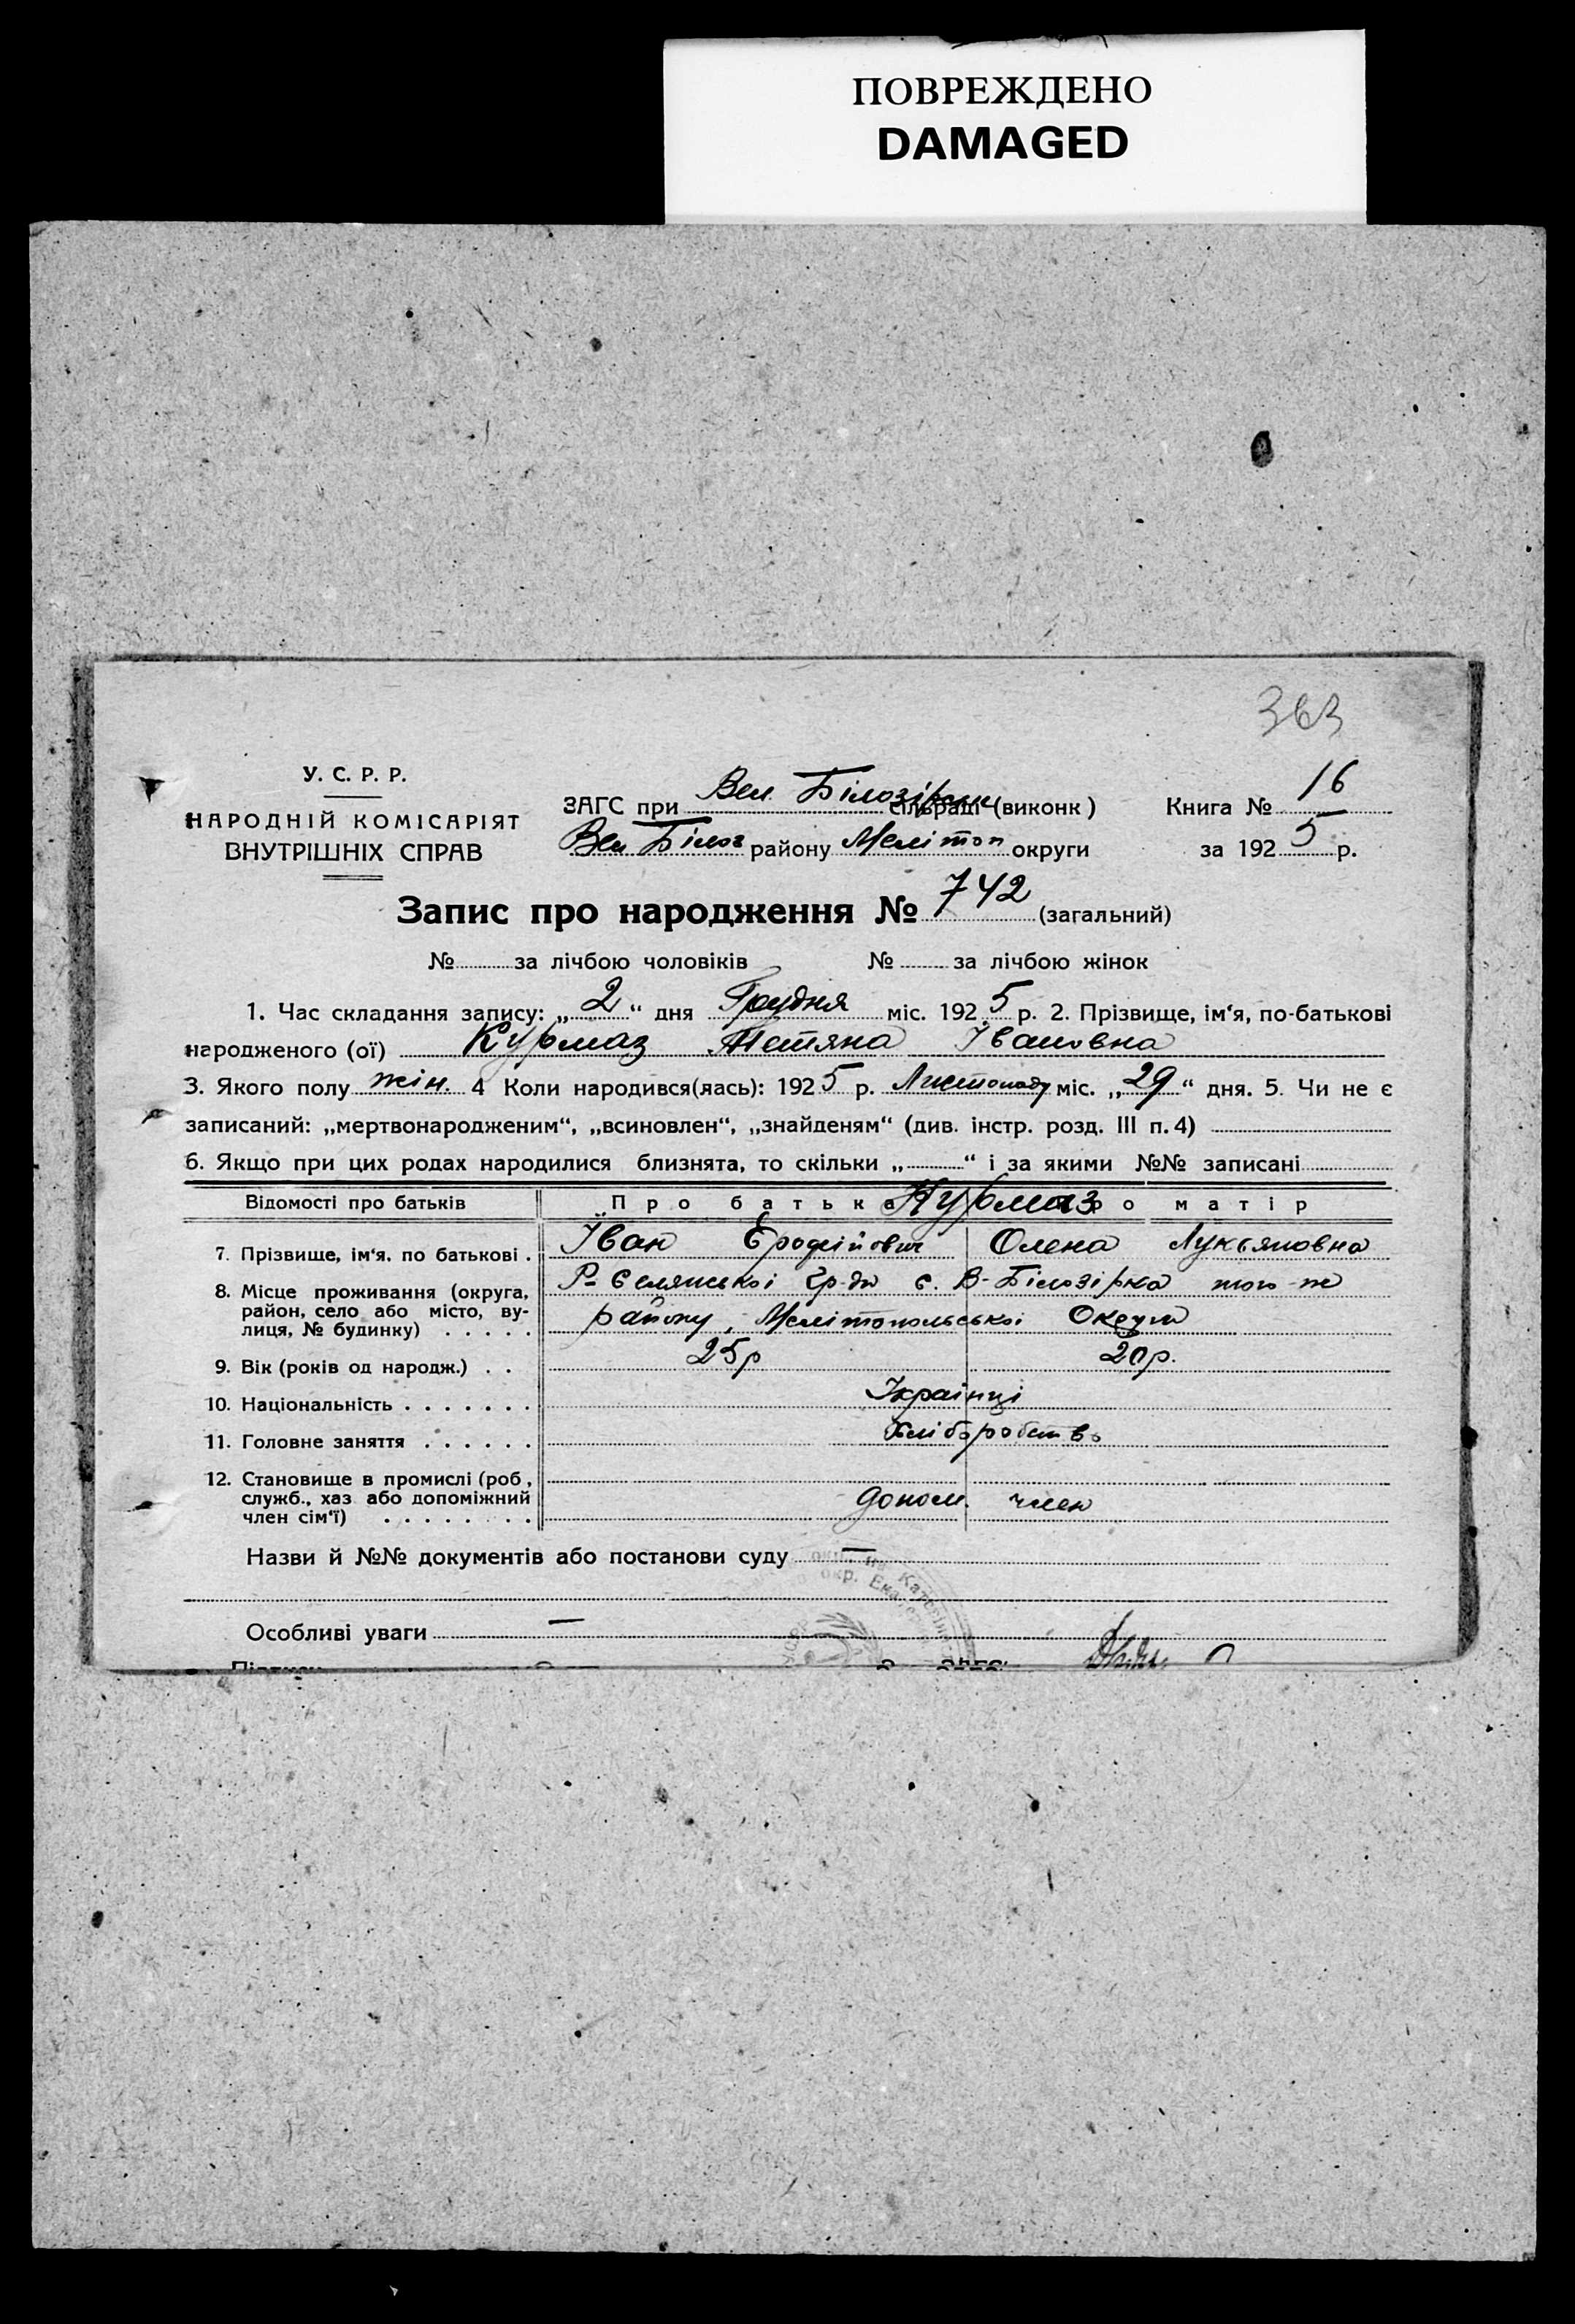 ПОВРЕЖДЕНО
DAMAGED
363
У. С. Р. Р.
НАРОДНІЙ КОМІСАРІЯТ
ВНУТРІШНІХ СПРАВ
ЗАГС при Вел. Білозірськ сільраді (виконк)
Вел. Білоз району Мелітоп округи
Книга № 16
за 1925 р.
Запис про народження № 742 (загальний)
№ за лічбою чоловіків № за лічбою жінок
1. Час складання запису: „2“ дня Грудня міс. 1925 р. 2. Прізвище, ім'я, по-батькові
народженого (ої) Курмаз Тетяна Івановна
3. Якого полу жін. 4 Коли народився(лась): 1925 р. Листопаду міс. „29“ дня. 5. Чи не є
записаний: „мертвонародженим“, „всиновлен“, „знайденям“ (див. інстр. розд. III п. 4)
6. Якщо при цих родах народилися близнята, то скільки „ “ і за якими №№ записані
Відомості про батьків Про батька Курмаз Про матір
7. Прізвище, ім'я, по батькові . Іван Єрофійович Олена Лукьяновна
8. Місце проживання (округа, Р- Селянської гр-ди с. В-Білозірка того-ж
район, село або місто, ву- району, Мелітопольської Округи
лиця, № будинку) . . . . .
9. Вік (років од народж.) . . 25р 20р.
10. Національність . . . . . . . Українці
11. Головне заняття . . . . . . Хліборобство
12. Становище в промислі (роб,
служб., хаз або допоміжний допом. член
член сім'ї) . . . . . . . .
Назви й №№ документів або постанови суду —
Особливі уваги —